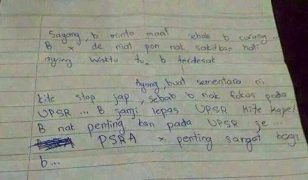 Sayang, b minta maaf sebab b curang...
B x de niat pon nak sakitkan hati
ayang. Waktu tu b terdesak
Ayang buat sementara ni
kite stop jap, sebab b nak fokus pada
UPSR... B janji lepas UPSR kite kapel
B nak penting kan pada UPSR je
PSRA x penting sangat bagi
b...